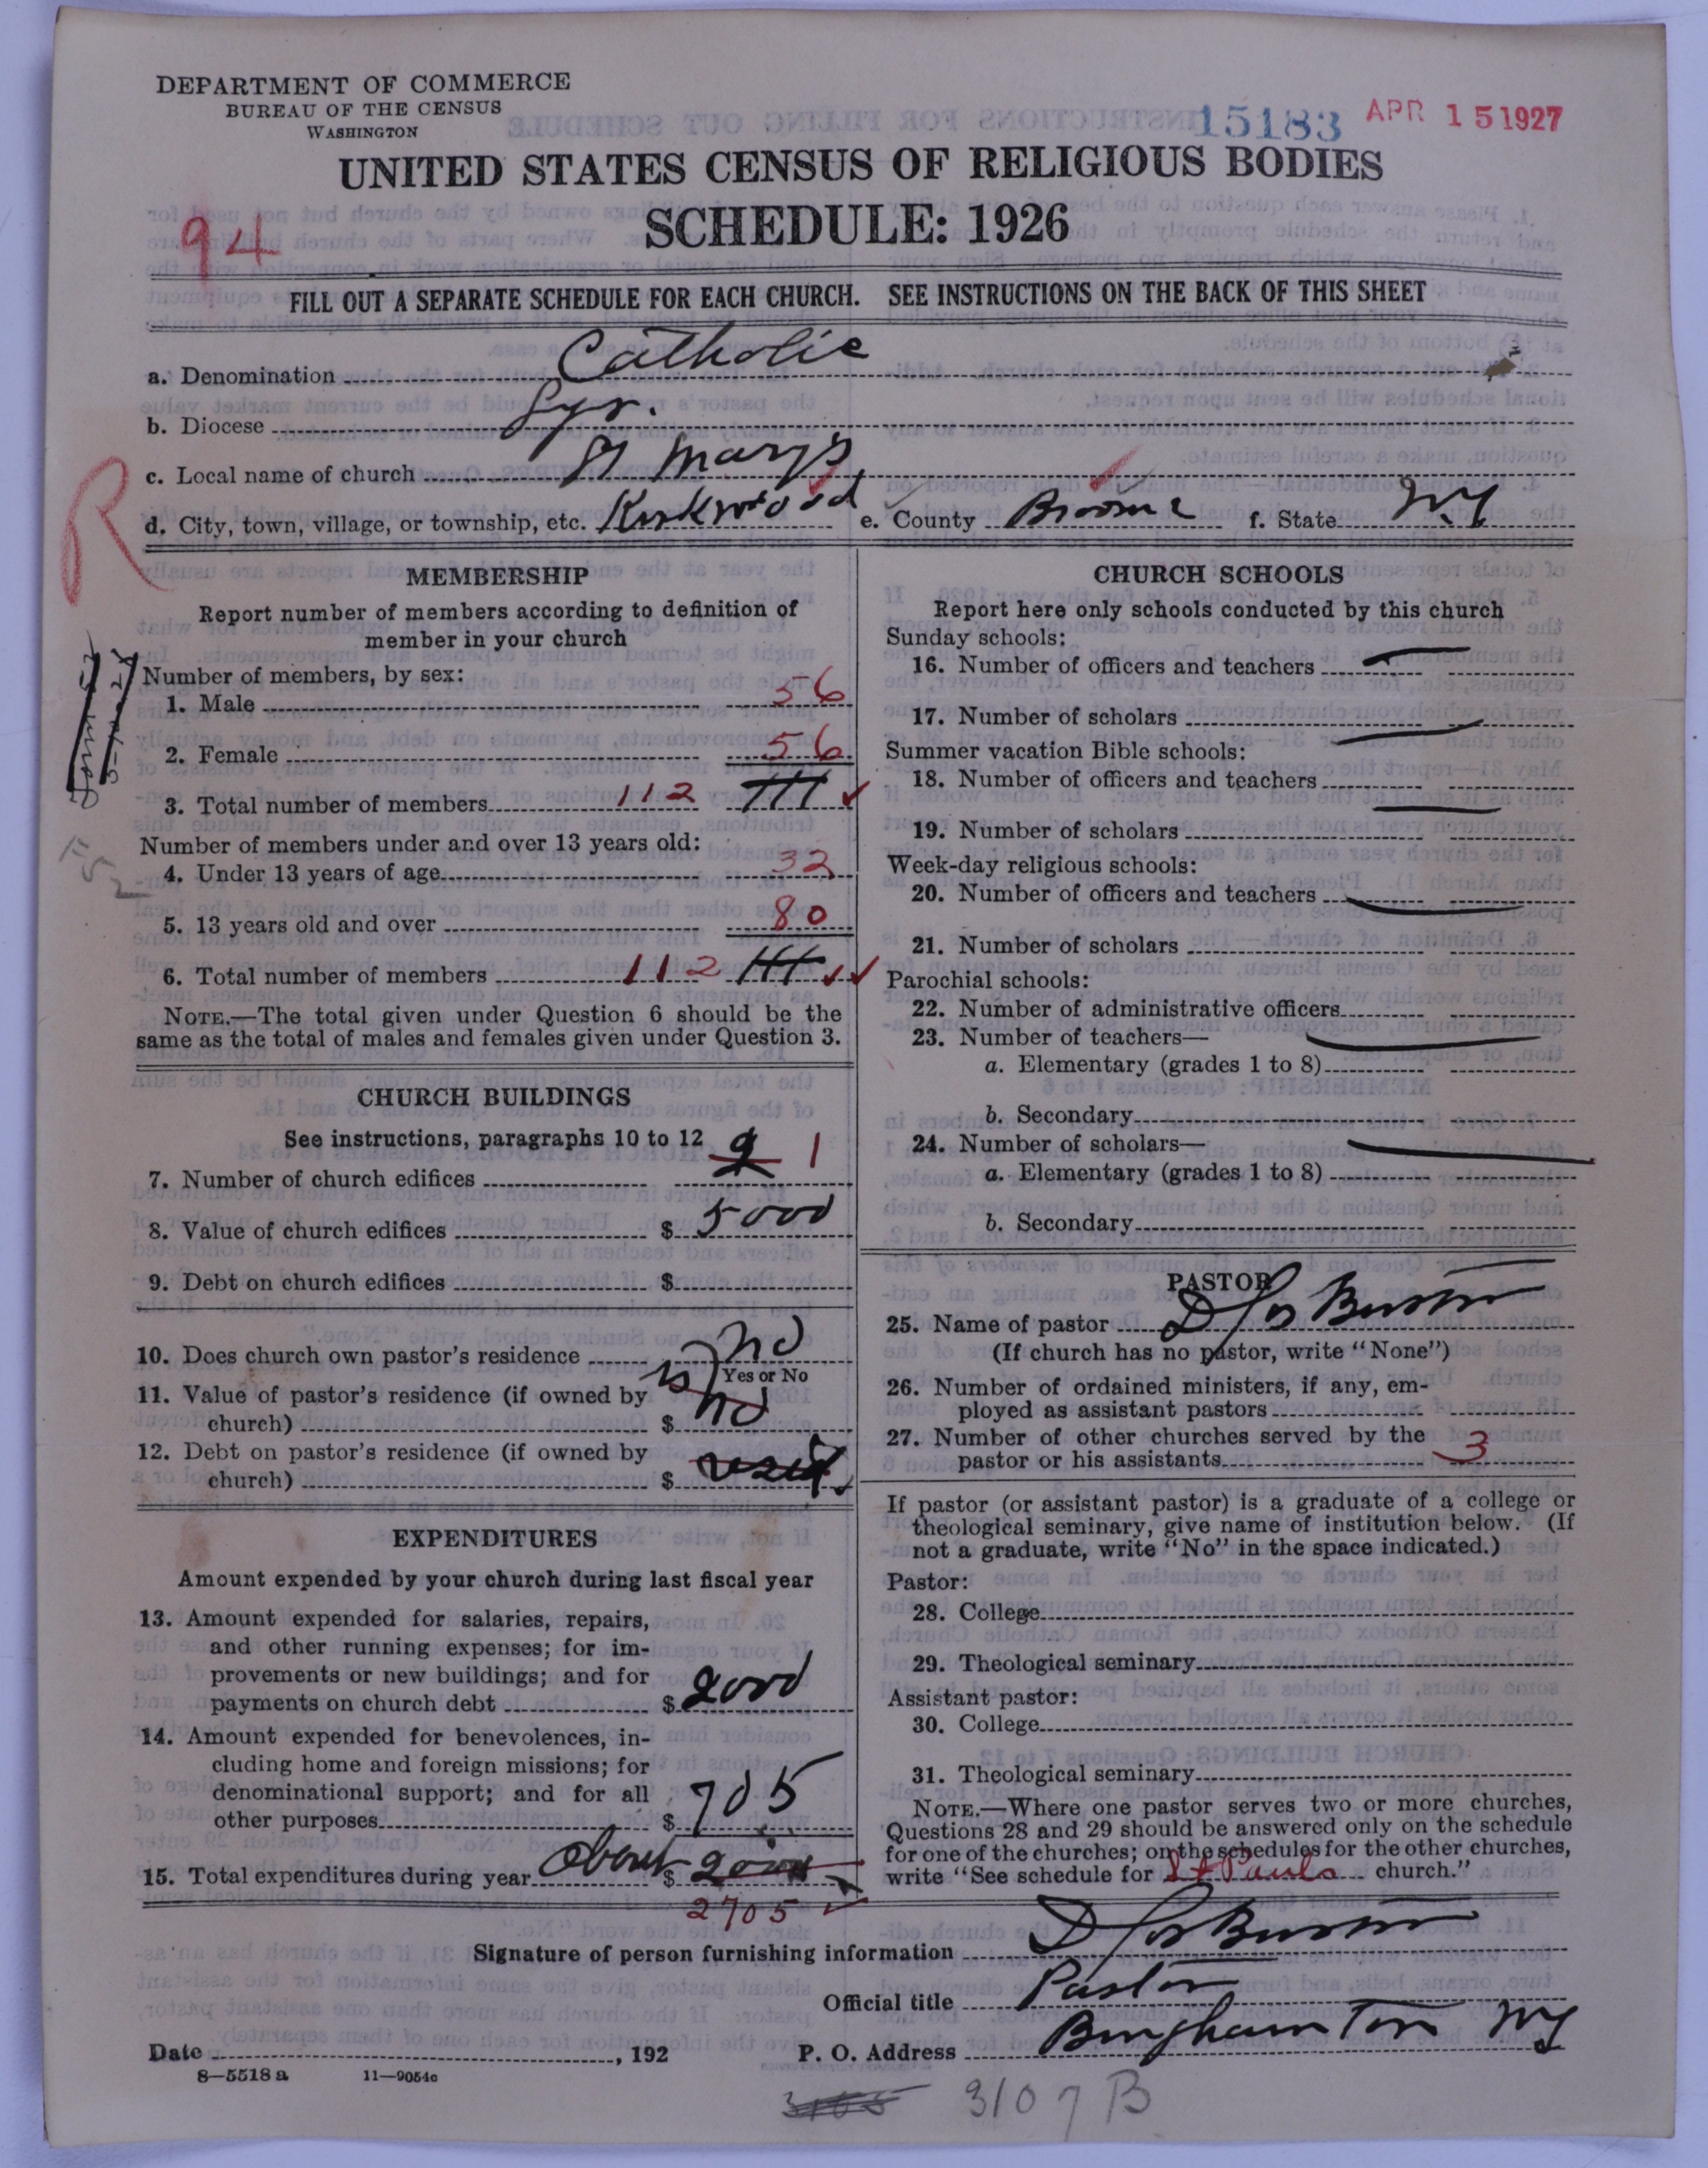 DEPARTMENT OF COMMERCE
BUREAU OF THE CENSUS
WASHINGTON
15183 APR 15 1927
UNITED STATES CENSUS OF RELIGIOUS BODIES
SCHEDULE: 1926
94
FILL OUT A SEPARATE SCHEDULE FOR EACH CHURCH. SEE INSTRUCTIONS ON THE BACK OF THIS SHEET
a. Denomination Catholic
b. Diocese Syr.
c. Local name of church St Marys
d. City, town, village, or township, etc. Kirkwood e. County Broome f. State NY
R
MEMBERSHIP
Report number of members according to definition of
member in your church
Number of members, by sex:
1. Male 56
2. Female 56
3. Total number of members 112 111
Number of members under and over 13 years old:
4. Under 13 years of age 32
5. 13 years old and over 80
6. Total number of members 112 111
NOTE.—The total given under Question 6 should be the
same as the total of males and females given under Question 3.
CHURCH BUILDINGS
See instructions, paragraphs 10 to 12
7. Number of church edifices 1
8. Value of church edifices $ 5000
9. Debt on church edifices $
10. Does church own pastor's residence no
Yes or No
11. Value of pastor's residence (if owned by
church) $ no
12. Debt on pastor's residence (if owned by
church) $
EXPENDITURES
Amount expended by your church during last fiscal year
13. Amount expended for salaries, repairs,
and other running expenses; for im-
provements or new buildings; and for
payments on church debt $ 2000
14. Amount expended for benevolences, in-
cluding home and foreign missions; for
denominational support; and for all
other purposes $ 705
15. Total expenditures during year about $ 2000
2705
CHURCH SCHOOLS
Report here only schools conducted by this church
Sunday schools:
16. Number of officers and teachers
17. Number of scholars
Summer vacation Bible schools:
18. Number of officers and teachers
19. Number of scholars
Week-day religious schools:
20. Number of officers and teachers
21. Number of scholars
Parochial schools:
22. Number of administrative officers
23. Number of teachers—
a. Elementary (grades 1 to 8)
b. Secondary
24. Number of scholars—
a. Elementary (grades 1 to 8)
b. Secondary
PASTOR
25. Name of pastor
(If church has no pastor, write "None")
26. Number of ordained ministers, if any, em-
ployed as assistant pastors
27. Number of other churches served by the
pastor or his assistants 3
If pastor (or assistant pastor) is a graduate of a college or
theological seminary, give name of institution below. (If
not a graduate, write "No" in the space indicated.)
Pastor:
28. College
29. Theological seminary
Assistant pastor:
30. College
31. Theological seminary
NOTE.—Where one pastor serves two or more churches,
Questions 28 and 29 should be answered only on the schedule
for one of the churches; on the schedules for the other churches,
write "See schedule for St Pauls church."
Signature of person furnishing information
Official title Pastor
Date , 192 P. O. Address Binghamton NY
8—5518 a 11—9054c
3105 3107 B